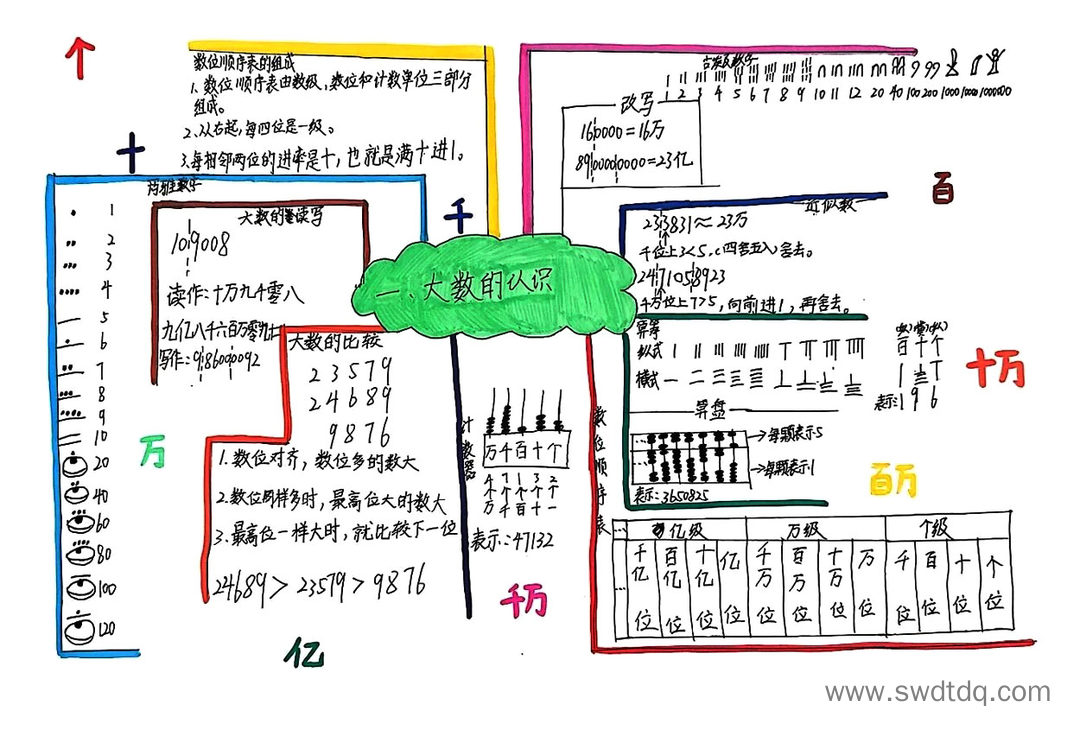 一、大数的认识
个
十
千
百
万
十万
百万
千万
亿
数位顺序表的组成
1.数位顺序表由数级、数位和计数单位三部分
组成。
2.从右起,每四位是一级。
3.每相邻两位的进率是十,也就是满十进1。
1
2
3
4
5
6
7
8
9
10
20
40
60
80
100
120
大数的读写
109008
读作:十万九千零八
九亿八千六百万零九十
写作:986000092
大数的比较
23579
24689
9876
1.数位对齐,数位多的数大
2.数位同样多时,最高位大的数大
3.最高位一样大时,就比较下一位
24689>23579>9876
计数器
万千百十个
4 7 1 3 2
个个个个个
万千百十一
表示:47132
1 2 3 4 5 6 7 8 9 10 11 12 20 40 100 200 1000
改写
160000=16万
=23亿
近似数
233831≈23万
千位上3<5,(四舍五入)舍去。
2471058923
千万位上7>5,向前进1,再舍去。
算筹
纵式
横式
百十个
表示:196
算盘
每颗表示5
每颗表示1
表示:3650825
数位顺序表
亿级 万级 个级
… 千亿位 百亿位 十亿位 亿位 千万位 百万位 十万位 万位 千位 百位 十位 个位
www.swdtdq.com